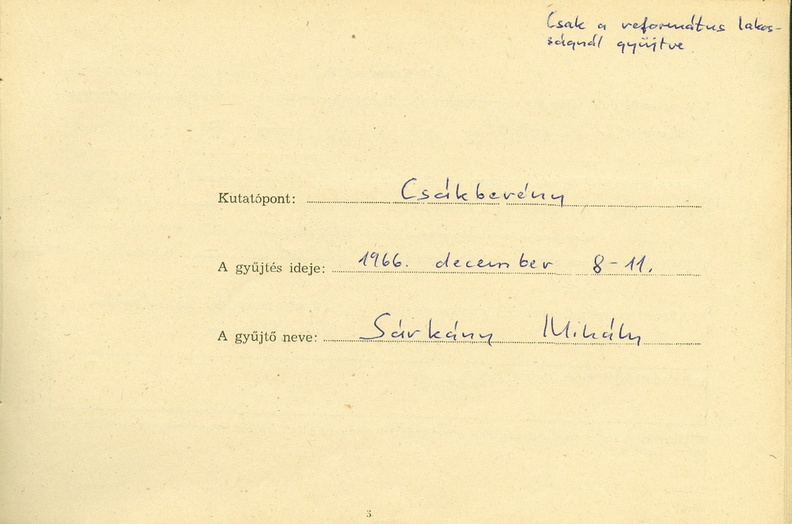 Csak a református lakos-
ságnál gyűjtve
Kutatópont: Csákberény
A gyűjtés ideje: 1966. december 8-11.
A gyűjtő neve: Sárkány Mihály
3